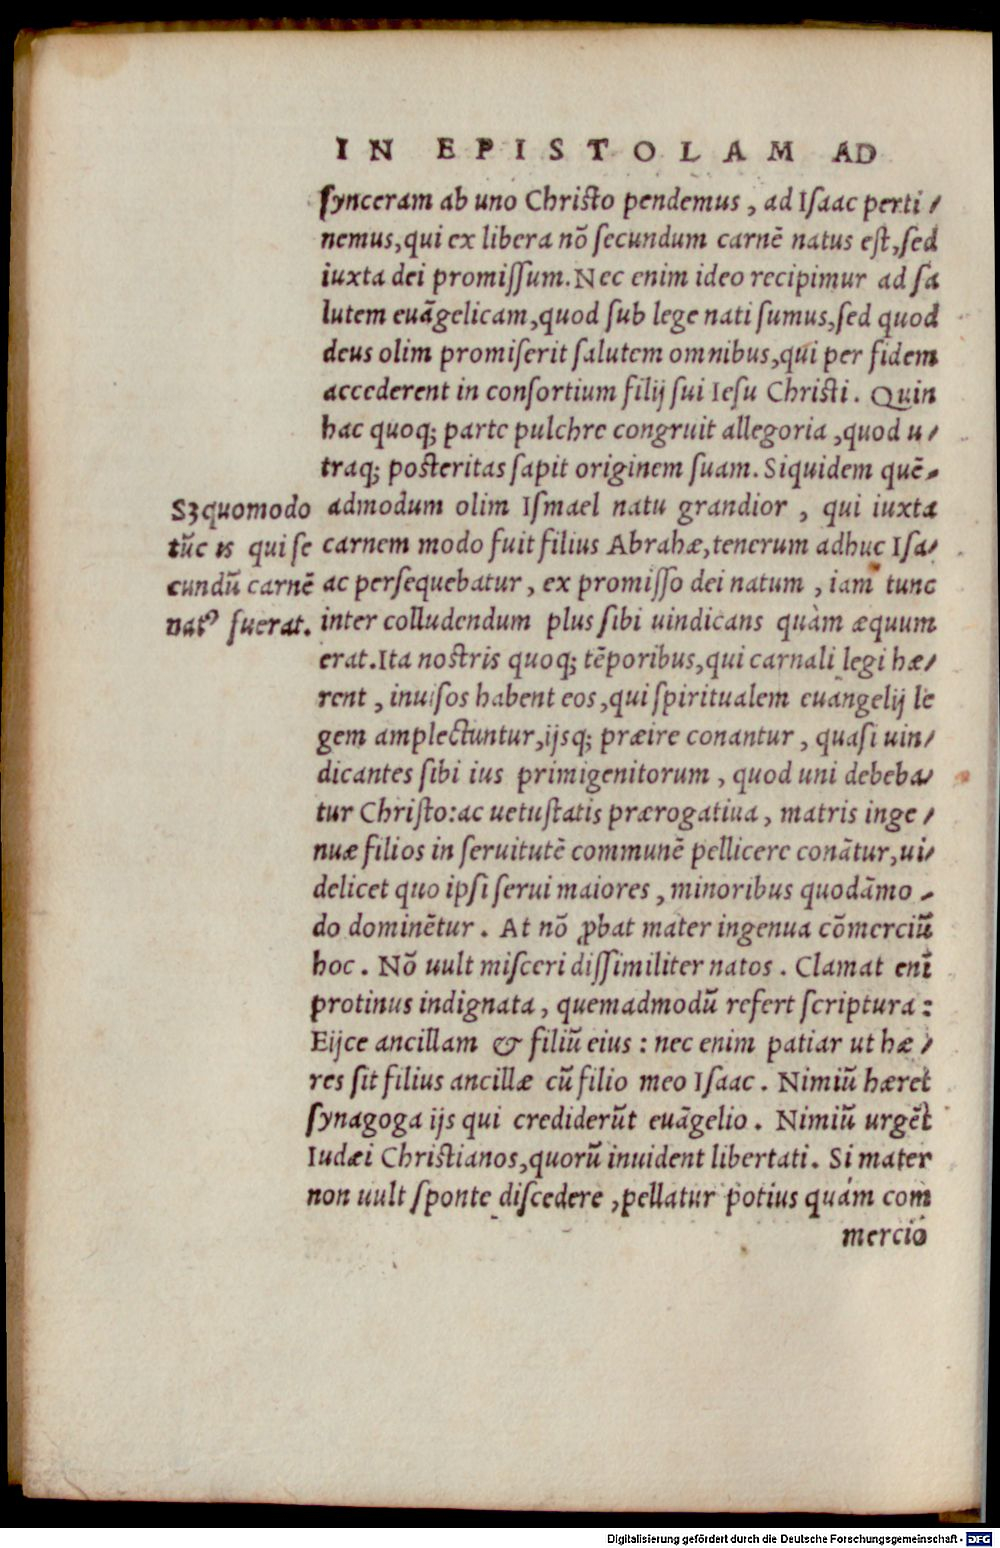 IN EPISTOLAM AD
ſynceram ab uno Chriſto pendemus, ad Iſaac perti/
nemus, qui ex libera nõ ſecundum carnẽ natus eſt, ſed
iuxta dei promiſſum. Nec enim ideo recipimur ad ſa
lutem euãgelicam, quod ſub lege nati ſumus, ſed quod
deus olim promiſerit ſalutem omnibus, qui per fidem
accederent in conſortium filij ſui Ieſu Chriſti. Quin
hac quoq; parte pulchre congruit allegoria, quod u/
traq; poſteritas ſapit originem ſuam. Siquidem quẽ/
admodum olim Iſmael natu grandior, qui iuxta
carnem modo fuit filius Abrahæ, tenerum adhuc Iſa/
ac perſequebatur, ex promiſſo dei natum, iam tunc
inter colludendum plus ſibi uindicans quàm æquum
erat. Ita noſtris quoq; tẽporibus, qui carnali legi hæ/
rent, inuiſos habent eos, qui ſpiritualem euangelij le
gem amplectuntur, ijsq; præire conantur, quaſi uin/
dicantes ſibi ius primigenitorum, quod uni debeba/
tur Chriſto: ac uetuſtatis prærogatiua, matris inge/
nuæ filios in ſeruitutẽ communẽ pellicere conãtur, ui/
delicet quo ipſi ſerui maiores, minoribus quodãmo/
do dominẽtur. At nõ ꝓbat mater ingenua cõmerciũ
hoc. Nõ uult miſceri diſſimiliter natos. Clamat enĩ
protinus indignata, quemadmodũ refert ſcriptura:
Eijce ancillam & filiũ eius: nec enim patiar ut hæ/
res ſit filius ancillæ cũ filio meo Iſaac. Nimiũ hæret
ſynagoga ijs qui crediderũt euãgelio. Nimiũ urgẽt
Iudæi Chriſtianos, quorũ inuident libertati. Si mater
non uult ſponte diſcedere, pellatur potius quám com
mercio
Sꝫ quomodo
tũc is qui ſe
cundũ carnẽ
natꝰ fuerat.
Digitalisierung gefördert durch die Deutsche Forschungsgemeinschaft - DFG